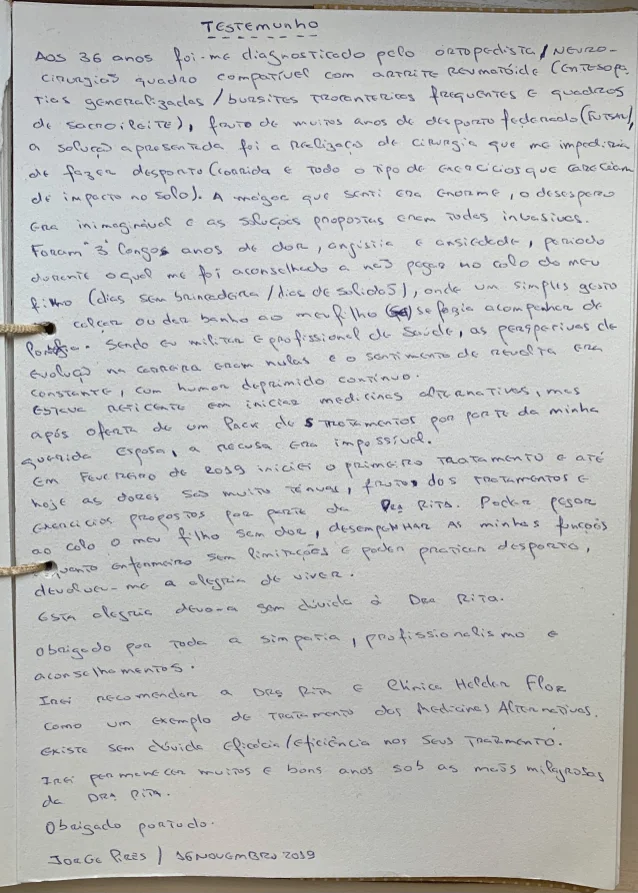 Testemunho
Aos 36 anos foi-me diagnosticado pelo ortopedista/Neuro-
cirurgião quadro compatível com artrite reumatóide (entesopa-
tias generalizadas/bursites trocantericas frequentes e quadros
de sacroileite), fruto de muitos anos de desporto federado (Futsal),
a solução apresentada foi a realização de cirurgia que me impediria
de fazer desporto (corrida e todo o tipo de exercícios que careciam
de impacto no solo). A mágoa que senti era enorme, o desespero
era inimaginável e as soluções propostas eram todas invasivas.
Foram "3" longos anos de dor, angústia e ansiedade, período
durante o qual me foi aconselhado a não pegar no colo do meu
filho (dias sem brincadeira/dias de solidão), onde um simples gesto
calçar ou dar banho ao meu filho se fazia acompanhar de
Sendo eu militar e profissional de saúde, as perspectivas de
evolução na carreira eram nulas e o sentimento de revolta era
constante, com humor deprimido contínuo.
Estava reticente em iniciar medicinas alternativas, mas
após oferta de um Pack de 5 tratamentos por parte da minha
querida esposa, a recusa era impossível.
Em Fevereiro de 2019 iniciei o primeiro tratamento e até
hoje as dores são muito ténues, fruto dos tratamentos e
exercícios propostos por parte da Dra Rita. Poder pegar
ao colo o meu filho sem dor, desempenhar as minhas funções
enquanto enfermeiro sem limitações e poder praticar desporto,
devolveu-me a alegria de viver.
Esta alegria devo-a sem dúvida à Dra Rita.
Obrigado por toda a simpatia, profissionalismo e
aconselhamentos.
Irei recomendar a Dra Rita e Clinica Helder Flor
como um exemplo de tratamento das Medicinas Alternativas.
Existe sem dúvida eficácia/eficiência nos seus tratmento.
Irei permanecer muitos e bons anos sob as maõs milagrosas
da Dra Rita.
Obrigado por tudo.
Jorge Pires / 16 Novembro 2019